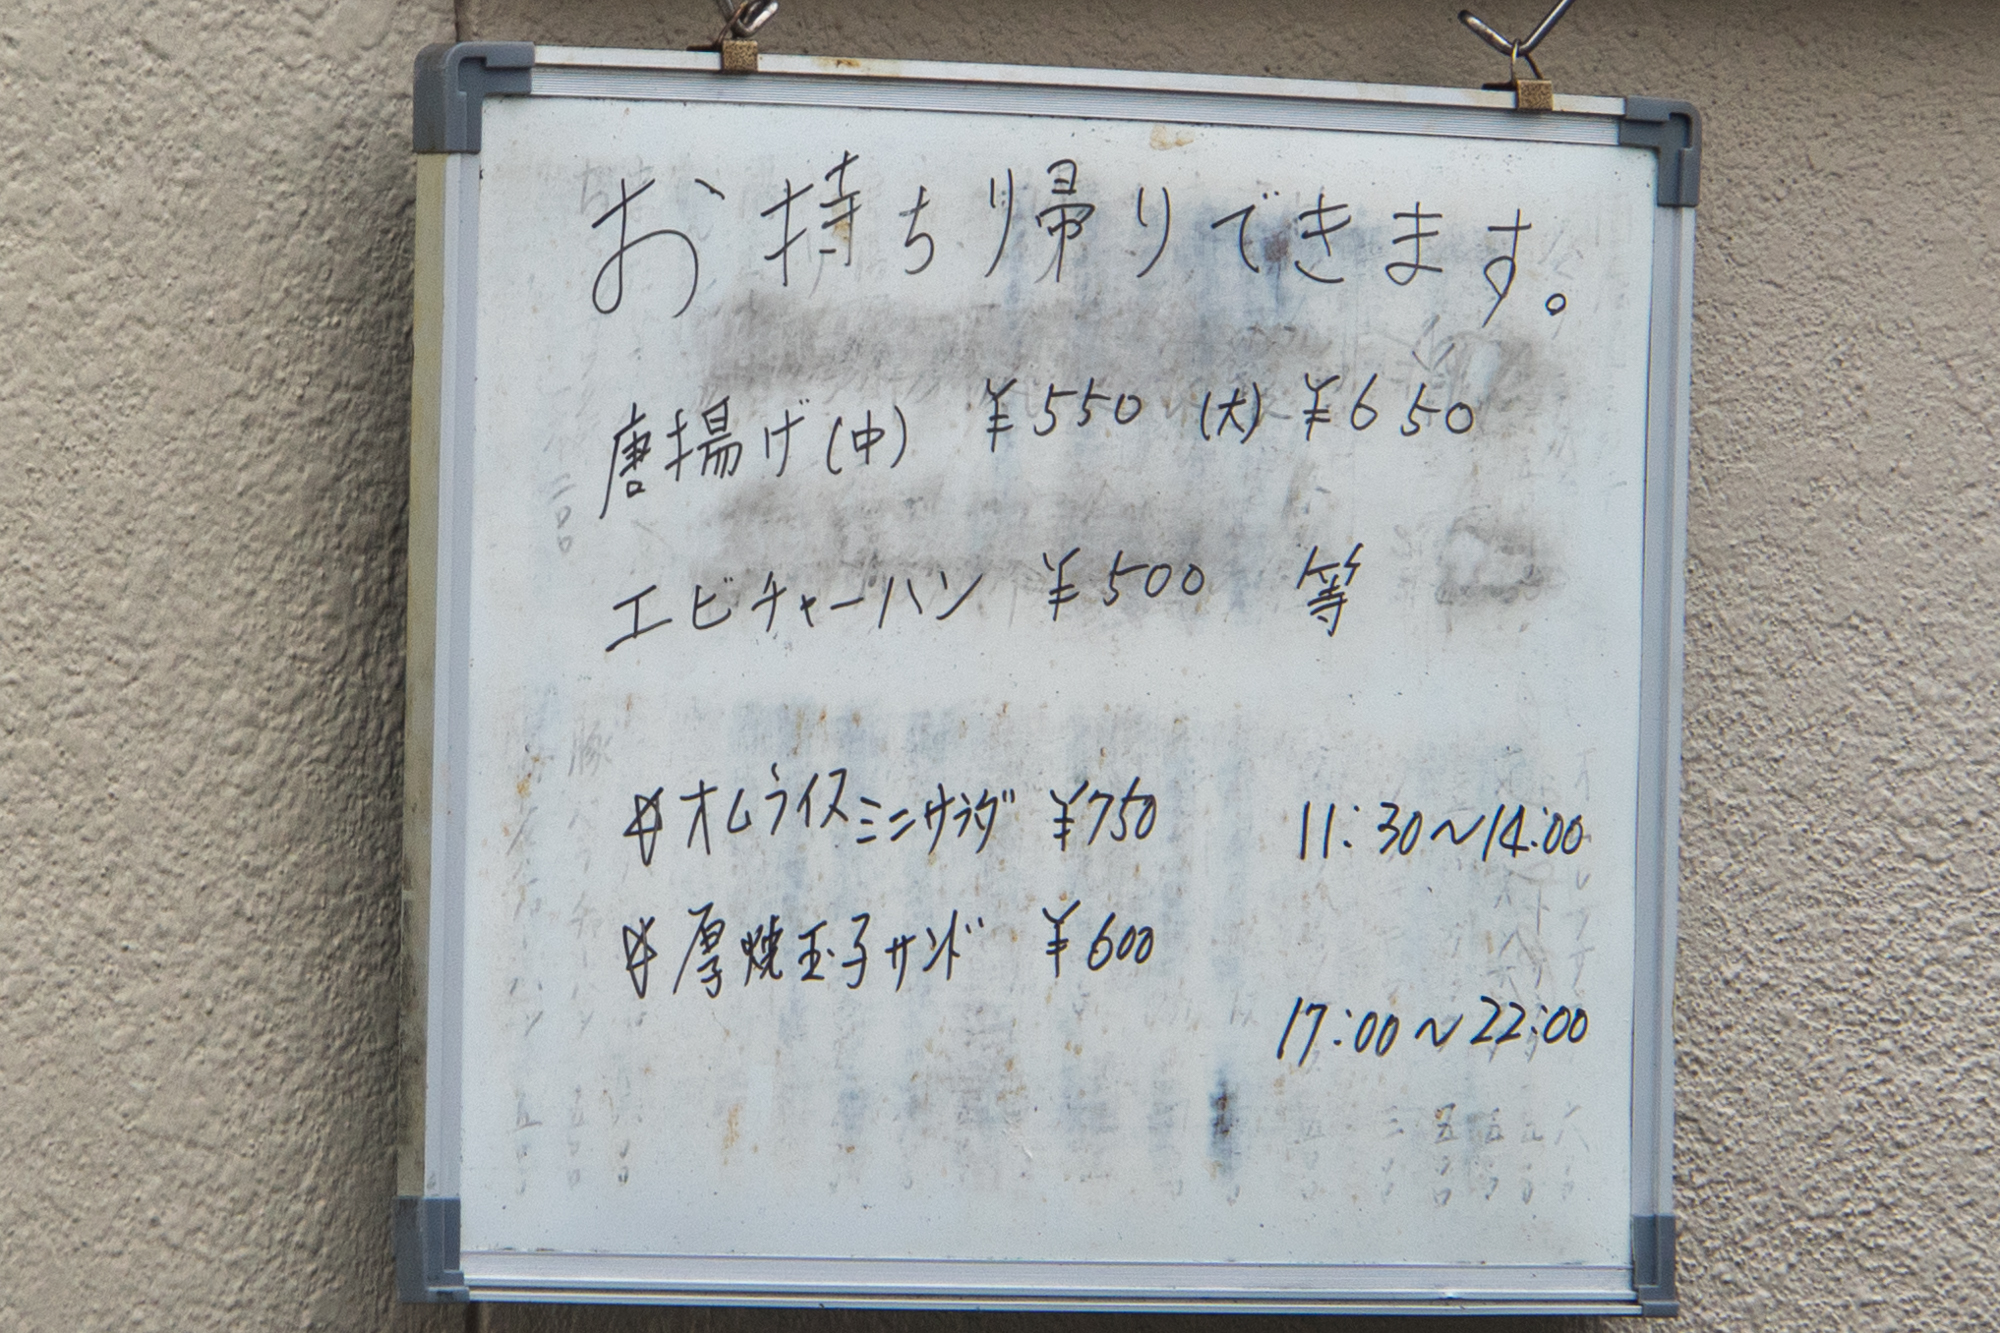 お持ちり帰りできます。
唐揚げ(中) ¥550 (大) ¥650
エビチャーハン ¥500 等
☆オムライスミニサラダ ¥750 11:30〜14:00
☆厚焼玉子サンド ¥600
17:00〜22:00